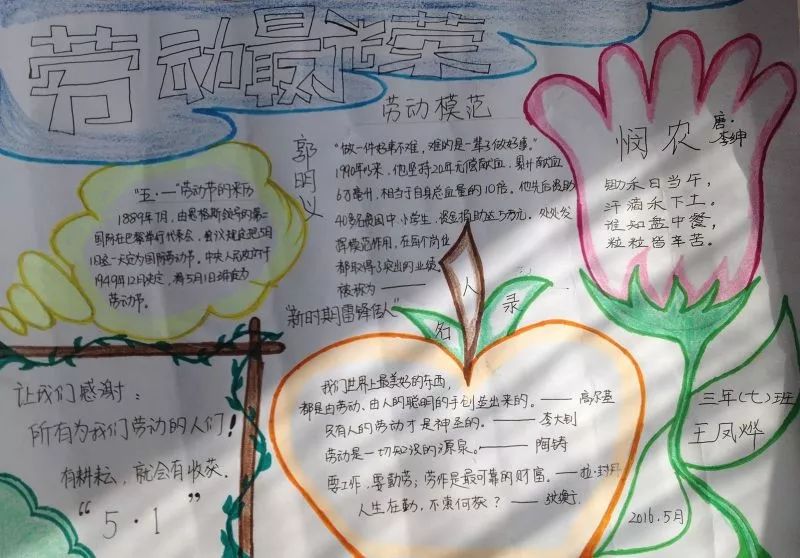 劳动最光荣
"五·一"劳动节的来历
1889年7月，由恩格斯领导的第二
国际在巴黎举行代表会，会议规定把5月
1日这一天定为国际劳动节。中央人民政府于
1949年12月决定，将5月1日确定为
劳动节。
劳动模范
郭明义
"做一件好事不难，难的是一辈子做好事。"
1990年以来，他坚持20年无偿献血，累计献血
6万毫升，相当于自身总血量的10倍。他先后资助
40多名贫困中小学生，资金捐助达5万元。处处发
挥模范作用，在每个岗位
都取得了突出的业绩，
被称为——
"新时期雷锋传人"
悯农
唐·
李绅
锄禾日当午，
汗滴禾下土。
谁知盘中餐，
粒粒皆辛苦。
让我们感谢：
所有为我们劳动的人们！
有耕耘，就会有收获.
"5·1"
名人录
我们世界上最美好的东西，
都是由劳动、由人的聪明的手创造出来的。——高尔基
只有人的劳动才是神圣的。——李大钊
劳动是一切知识的源泉。——陶铸
要工作，要勤劳；劳作是最可靠的财富。——拉·封丹
人生在勤，不索何获？——张衡
三年(七)班
王凤烨
2016.5月